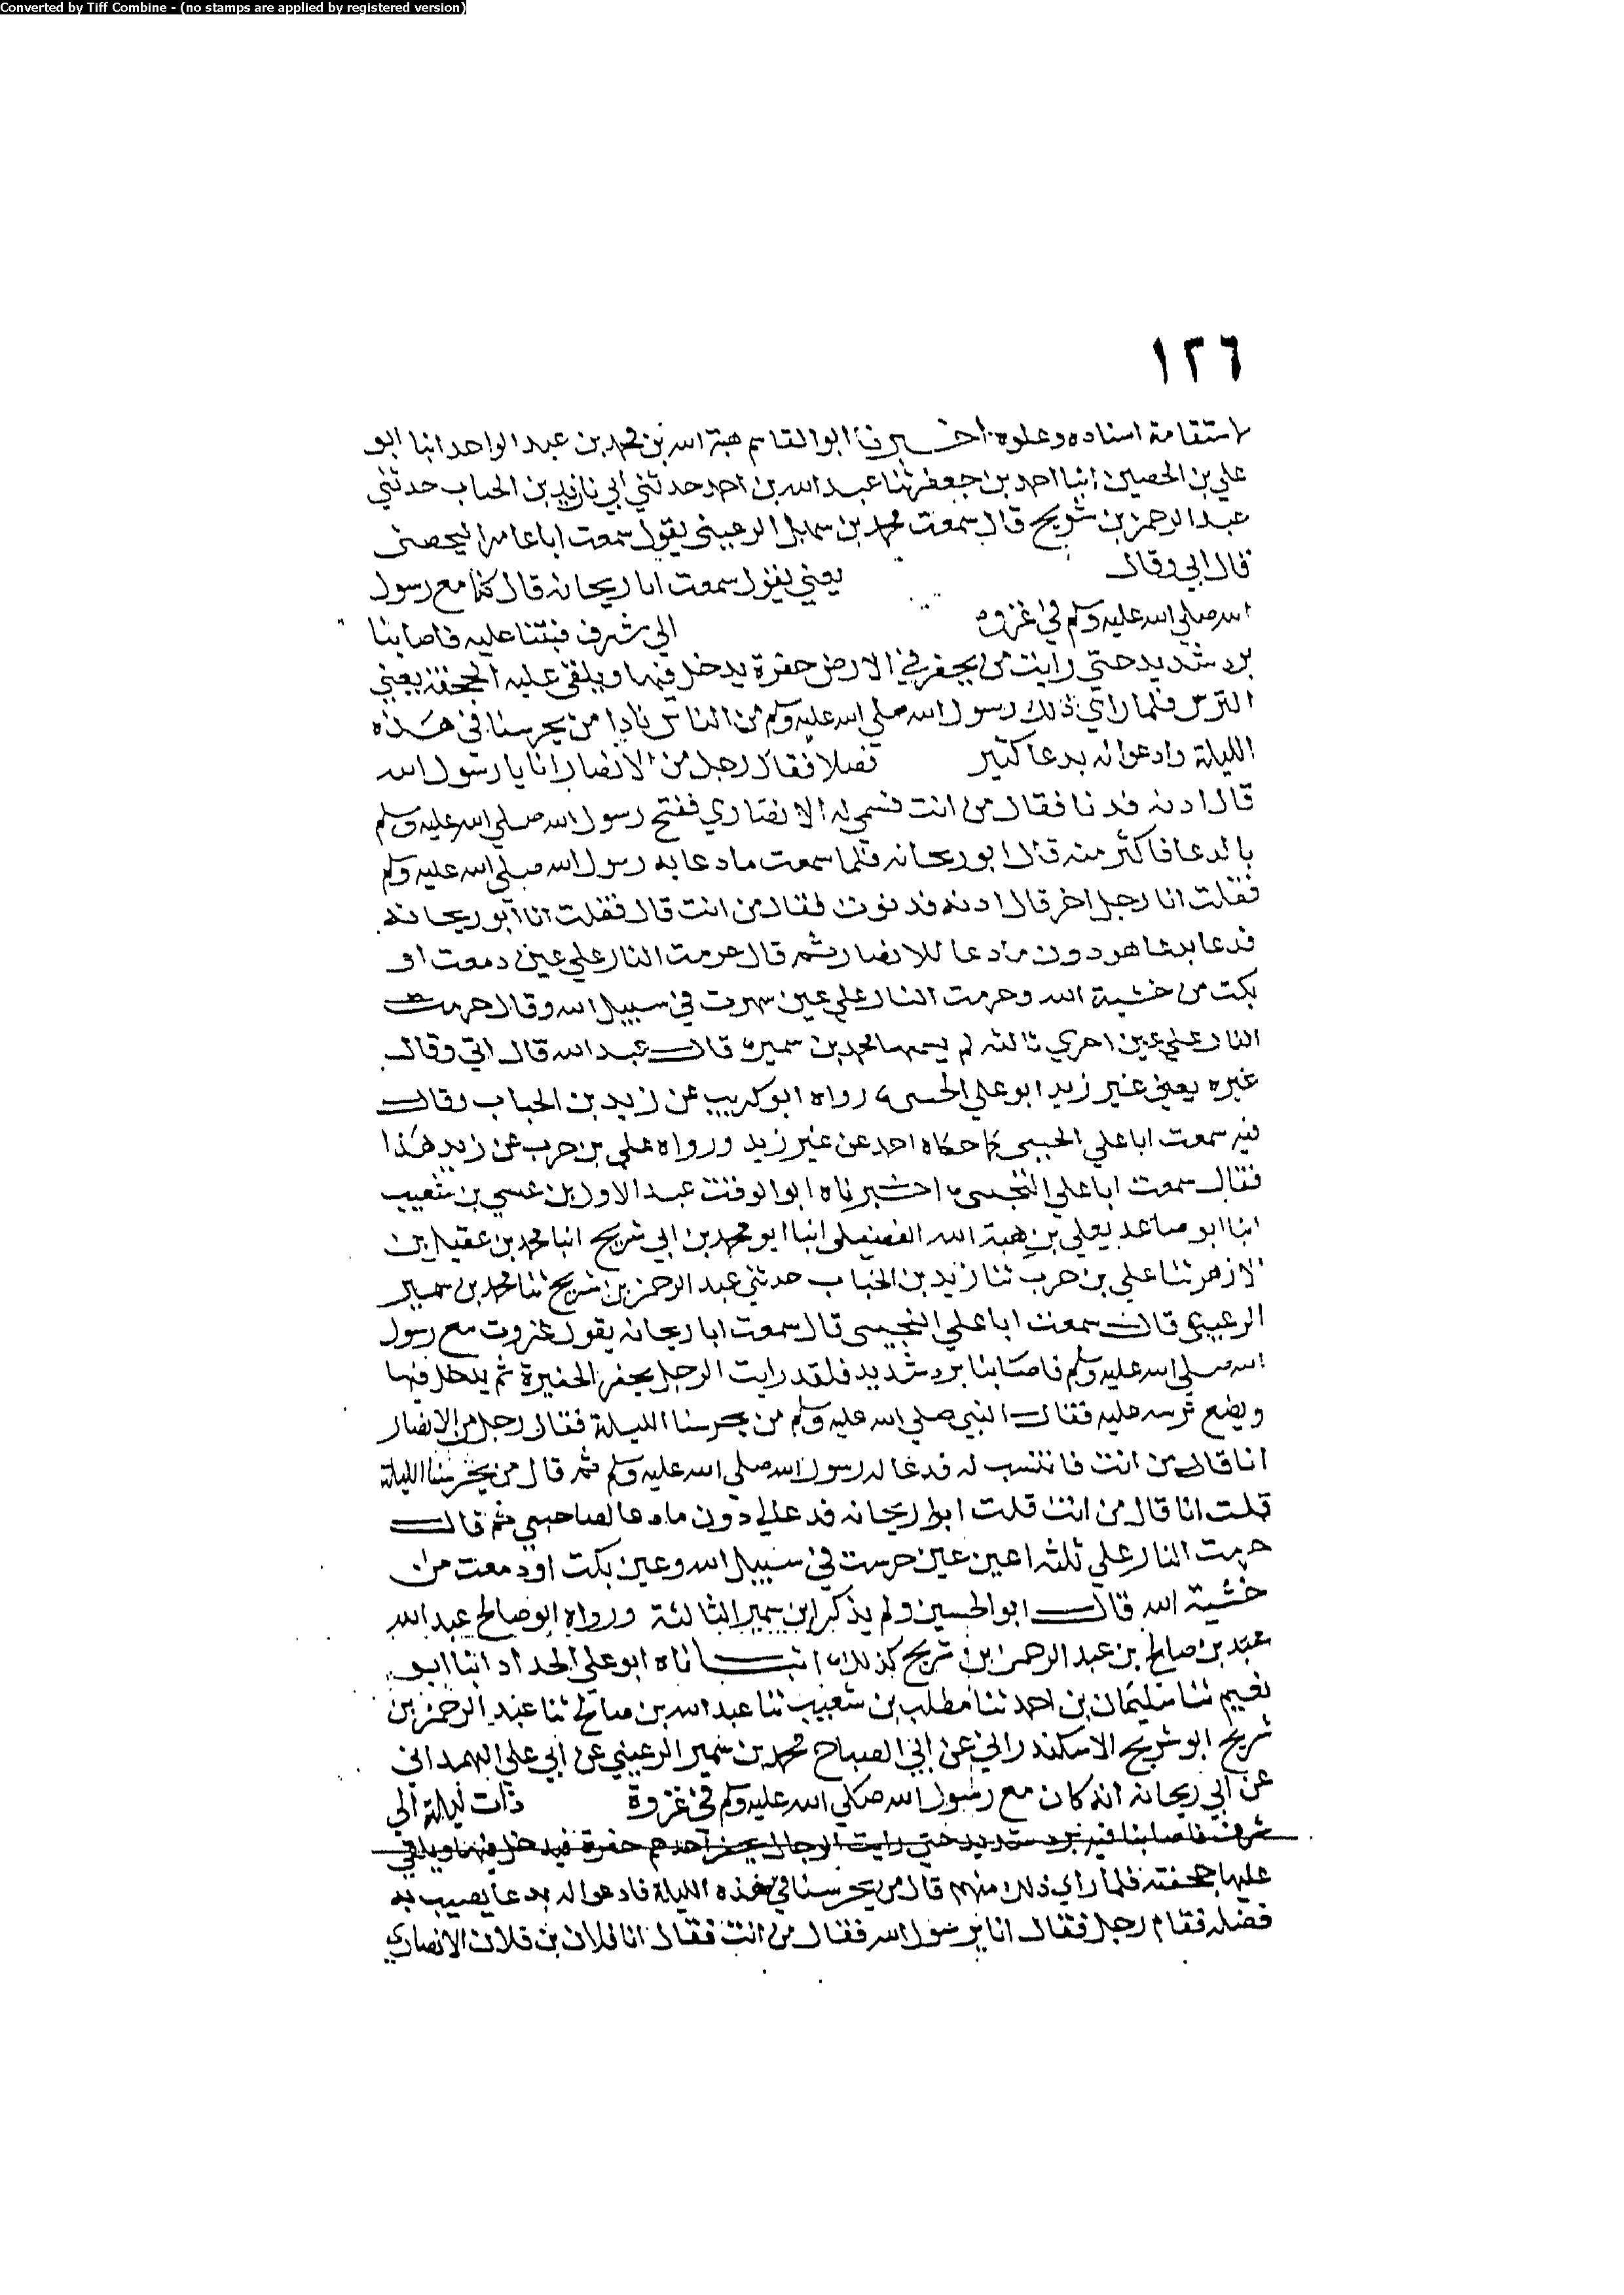 Converted by Tiff Combine - (no stamps are applied by registered version)
١٢٦
لاستقامة اسناده وعلوه اخبرنا ابو القاسم هبة الله بن محمد بن عبد الواحد انبا ابو
علي بن الحصين انبا احمد بن جعفر ثنا عبد الله بن احمد حدثني ابي نا زيد بن الحباب حدثني
عبد الرحمن بن شريح قال سمعت محمد بن سمير الرعيني يقول سمعت ابا عامر اليحصى
قال ابي وقال يعني يقول سمعت ابا ريحانه قال كنا مع رسول
الله صلي الله عليه وسلم في غزوه الي شرف فبتنا عليه فاصابنا
برد شديد حتي رايت من يحفر في الارض حفرة يدخل فيها ويلقى عليه الجحفة يعني
الترس فلما راي ذلك رسول الله صلي الله عليه وسلم من الناس نادا من يحرسنا في هذه
الليلة وادعوا له بدعا كثير فضلا فقال رجل من الانصار انا يا رسول الله
قال ادنه فدنا فقال من انت فسمى له الانصاري ففتح رسول الله صلي الله عليه وسلم
بالدعا فاكثر منه قال ابو ريحانه فلما سمعت ما دعا به رسول الله صلي الله عليه وسلم
فقلت انا رجل اخر قال ادنه فدنوت فقال من انت قال فقلت انا ابو ريحانه
فدعا بدعا هو دون ما دعا للانصار ثم قال حرمت النار علي عين دمعت او
بكت من خشية الله وحرمت النار علي عين سهرت في سبيل الله وقال حرمت
النار علي عين اخري ثالثه لم يسمها محمد بن سمير قال عبد الله قال ابي وقال
غيره يعني غير زيد ابو علي الحسى رواه ابو كريب عن زيد بن الحباب وقال
فيه سمعت ابا علي الحسى كما حكاه احمد عن غير زيد ورواه علي بن حرب عن زيد هكذا
فقال سمعت ابا علي التجيبي اخبرناه ابو الوقت عبد الاول بن عيسي بن شعيب
انبا ابو صاعد يعلي بن هبة الله الفضيلي انبا ابو محمد بن ابي شريح انبا محمد بن عقيل بن
الازهر ثنا علي بن حرب ثنا زيد بن الحباب حدثني عبد الرحمن بن شريح ثنا محمد بن سمير
الرعيني قال سمعت ابا علي التجيبي قال سمعت ابا ريحانه يقول غزوت مع رسول
الله صلي الله عليه وسلم فاصابنا برد شديد فلقد رايت الرجل يحفر الحفيرة ثم يدخل فيها
ويضع ترسه عليه فقال النبي صلي الله عليه وسلم من يحرسنا الليلة فقال رجل من الانصار
انا قال من انت فانتسب له فدعا له رسول الله صلي الله عليه وسلم ثم قال من يحرسنا الليلة
قلت انا قال من انت قلت ابو ريحانه فدعا لي دون ما دعا لصاحبي ثم قال
حرمت النار علي ثلثه اعين عين حرست في سبيل الله وعين بكت او دمعت من
خشية الله قال ابو الحسين ولم يذكر ابن سمير الثالثة ورواه ابو صالح عبد الله
عبد بن صالح بن عبد الرحمن بن شريح كذلك انبأناه ابو علي الحداد انبا ابو
نعيم ثنا سليمان بن احمد ثنا مطلب بن شعيب ثنا عبد الله بن صالح ثنا عبد الرحمن بن
شريح ابو شريح الاسكندراني عن ابي الصباح محمد بن سمير الرعيني عن ابي علي الهمداني
عن ابي ريحانه انه كان مع رسول الله صلي الله عليه وسلم في غزوة ذات ليلة الي
شرف فاصابنا فيه برد شديد حتي رايت الرجال يحفر احدهم حفرة فيدخل فيها ويلقي
عليها جحفته فلما راي ذلك منهم قال من يحرسنا في هذه الليلة فادعوا له بدعا يصيب به
فضله فقام رجل فقال انا يرسول الله فقال من انت فقال انا فلان بن فلان الانصاري